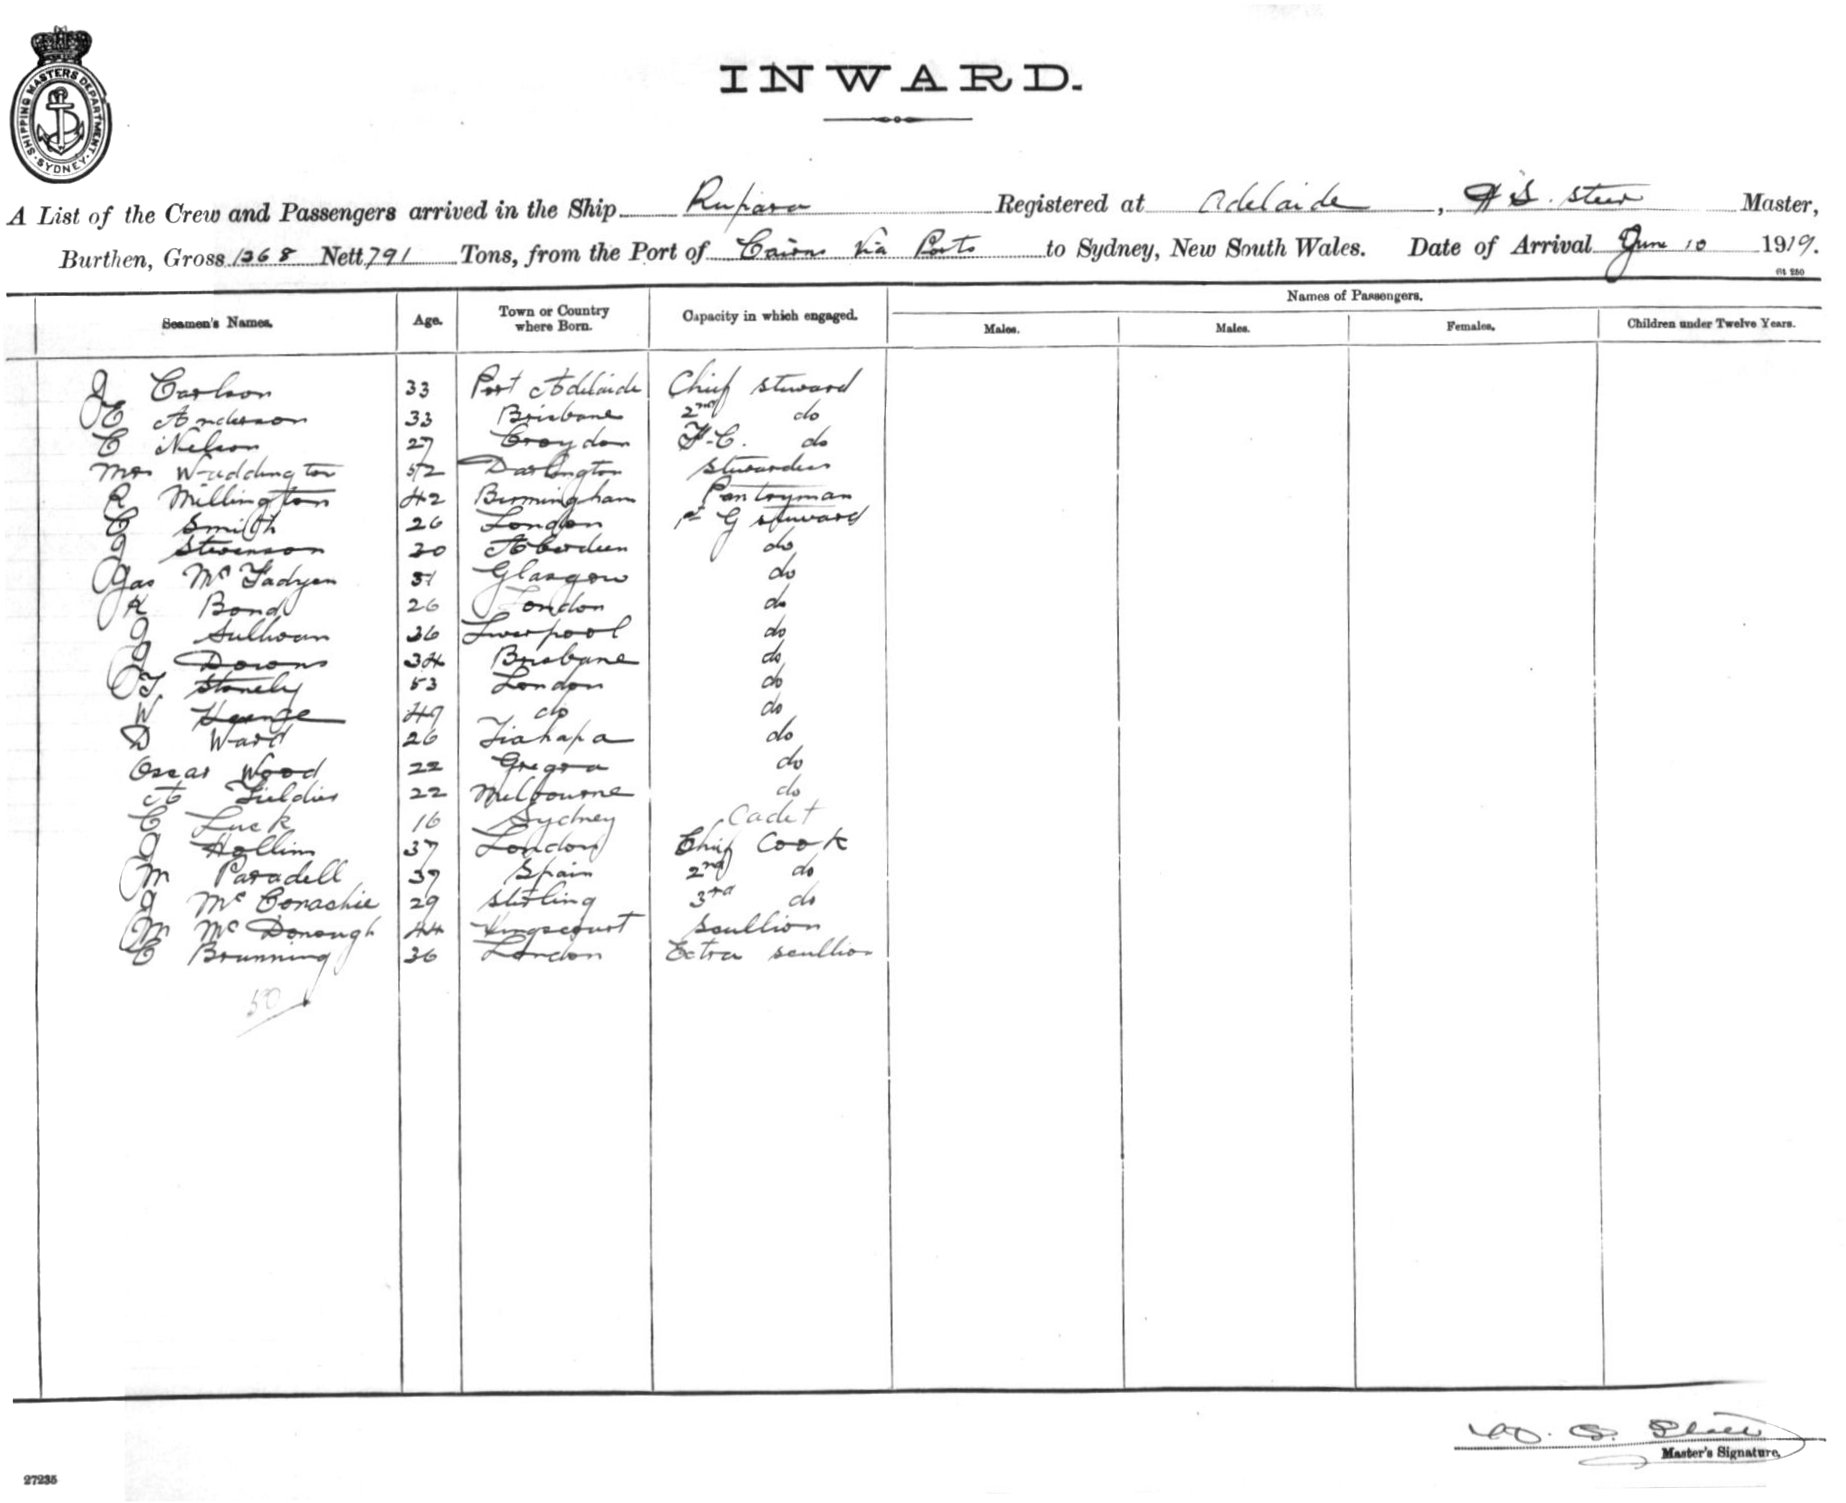 SHIPPING MASTERS DEPARTMENT · SYDNEY ·
INWARD.
A List of the Crew and Passengers arrived in the Ship Rupara Registered at Adelaide, Master,
Burthen, Gross 1268 Nett 791 Tons, from the Port of Cairns Via Ports to Sydney, New South Wales. Date of Arrival June 10 1919.
Seamen's Names. Age. Town or Country where Born. Capacity in which engaged. Names of Passengers.
Males. Males. Females. Children under Twelve Years.
J Carlson 33 Port Adelaide Chief Steward
E Anderson 33 Brisbane 2nd do
C Nelson 27 Croydon F.C. do
Mrs Waddington 52 Darlington Stewardess
R Millington 42 Birmingham Pantryman
C Smith 26 London G Steward
J Stevenson 30 Aberdeen do
Jas McFadyen 31 Glasgow do
K Bond 26 London do
J Sullivan 36 Liverpool do
J Downs 34 Brisbane do
T Stonely 53 London do
W 49 do do
D Ward 26 do
Oscar Wood 22 do
A 22 Melbourne do
C Luck 16 Sydney Cadet
J Hollim 37 London Chief Cook
M Paradell 39 Spain 2nd do
J McConachie 29 Stirling 3rd do
M McDonough 44 Kingscourt Scullion
C Brunning 36 London Extra Scullion
50
Master's Signature.
27235